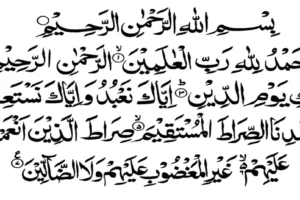 بِسْمِ اللهِ الرَّحْمٰنِ الرَّحِيْمِ
حَمْدُ لِلهِ رَبِّ الْعٰلَمِيْنَ الرَّحْمٰنِ الرَّحِيْمِ
كِ يَوْمِ الدِّيْنِ اِيَّاكَ نَعْبُدُ وَاِيَّاكَ نَسْتَعِ
دِنَا الصِّرَاطَ الْمُسْتَقِيْمَ صِرَاطَ الَّذِيْنَ اَنْعَمْ
عَلَيْهِمْ غَيْرِ الْمَغْضُوْبِ عَلَيْهِمْ وَلَا الضَّآلِّيْنَ